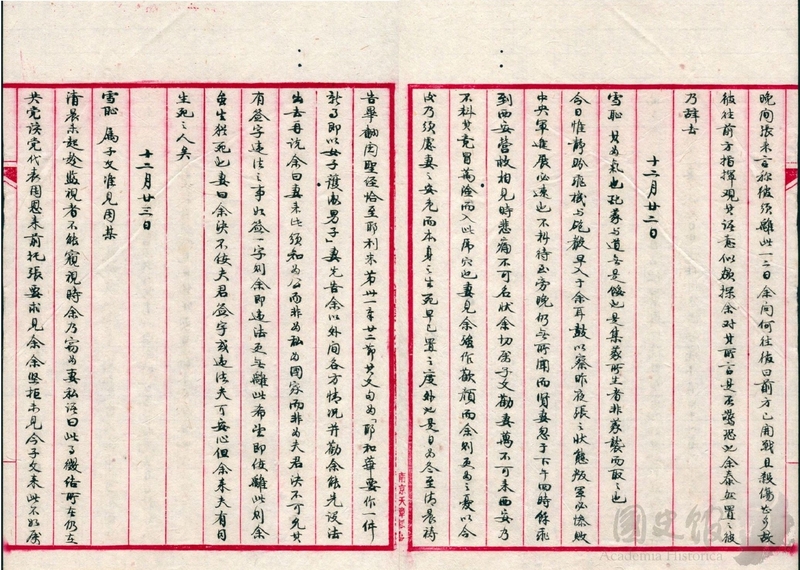 晚間張來言彼須離此一二日余問何往彼曰前方已開戰且殺傷甚多故
彼往前方指揮觀其語意似頗探余對其所言是否驚恐也余泰然置之彼
乃辭去
十二月廿二日
雪恥 其為氣也配義與道無是餒也是集義所生者非義襲而取之也
今日惟靜盼飛機與砲聲早入于余耳鼓以察昨夜張之狀態叛軍必慘敗
中央軍進展必速也不料待至旁晚仍無所聞而賢妻忽于下午四時餘飛
到西安營救相見時悲痛不可名狀余切囑子文勸妻萬不可來西安乃
不料其竟冒萬險而入此虎穴也妻見余強作歡顏而余則更為之憂以今
後乃須慮妻之安危而本身之生死早已置之度外也是日為冬至清晨禱
告畢翻閱聖經恰至耶利米第卅一章廿二節其文句為「耶和華要作一件
新事即以女子護衛男子」妻先告余以外間各方情況并勸余能先設法
出去再說余曰妻來此須知為公而非為私為國家而非為夫君決不可允其
有簽字違法之事如簽一字則余即違法更無離此希望即使離此則余
雖生猶死也妻曰余決不使夫君簽字或違法夫可安心但余來夫有同
生死之人矣
十二月廿三日
雪恥 屬子文準見周某
清晨未起趁監視者不能窺視時余乃密為妻私語曰此事癥結所在仍在
共党該党代表周恩來前托張要求見余余堅拒不見今子文來此不如屬
南京天
國史館
Academia Historica